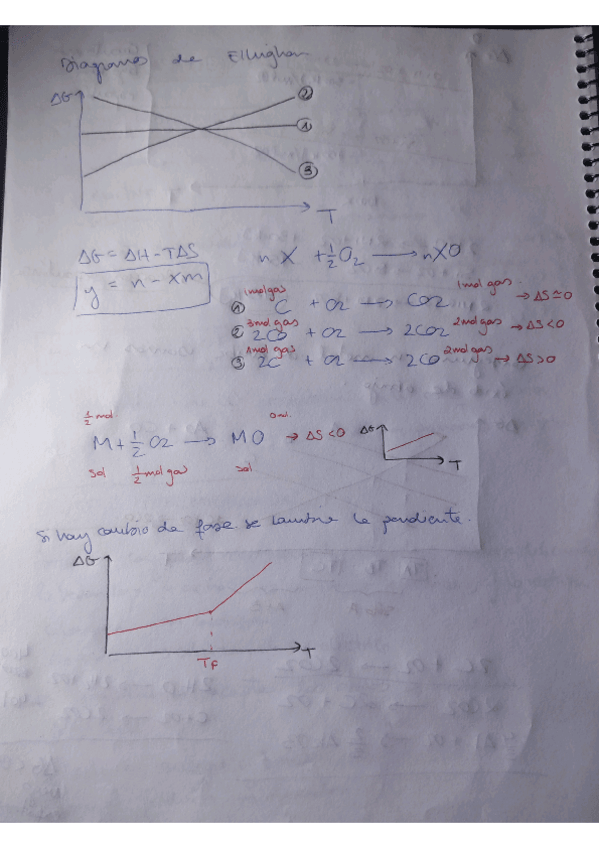 Diagramas de Ellingham
ΔG
②
①
③
T
ΔG = ΔH - TΔS
n X + 1/2 O2 → nXO
y = n - xm
1mol gas 1mol gas
① C + O2 → CO2 → ΔS ≃ 0
3mol gas 2mol gas
② 2CO + O2 → 2CO2 → ΔS < 0
1mol gas 2mol gas
③ 2C + O2 → 2CO → ΔS > 0
1/2 mol 0 mol
M + 1/2 O2 → MO → ΔS < 0
sol 1/2 mol gas sol
ΔG
T
Si hay cambio de fase se cambia la pendiente.
ΔG
T
TF